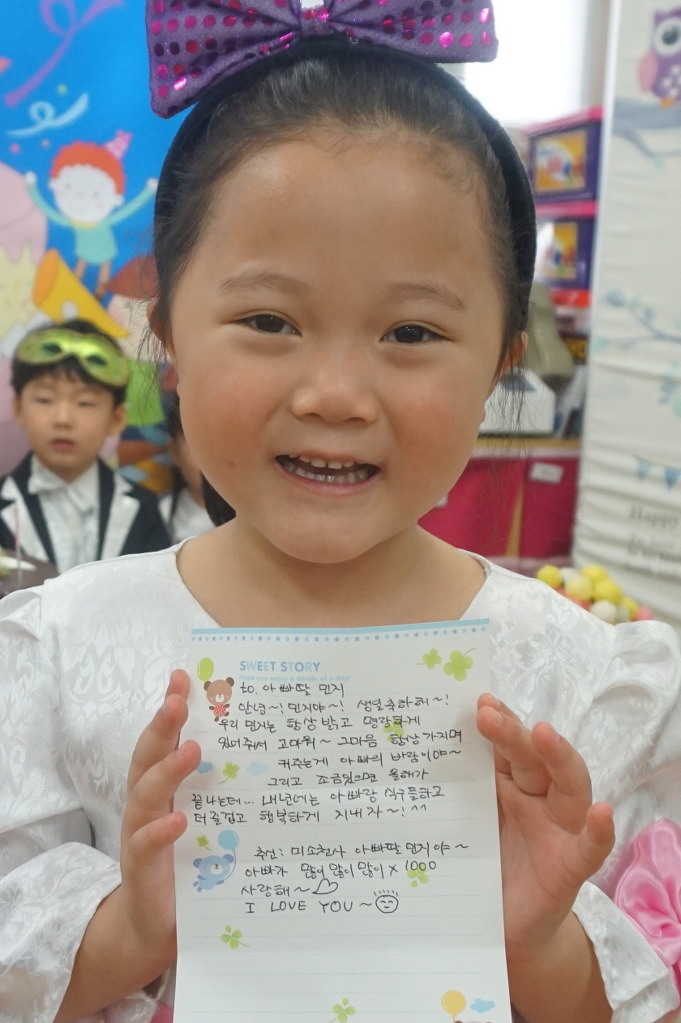 SWEET STORY
Hope you enjoy a whole of a day!
to. 아빠딸 민지
안녕~! 민지야~! 생일축하해~!
우리 민지는 항상 밝고 명랑하게
있어줘서 고마워~ 그마음 항상 가지며
커주는게 아빠의 바람이야~
그리고 조금있으면 올해가
끝나는데... 내년에는 아빠랑 식구들하고
더 즐겁고 행복하게 지내자~! ^^
추신: 미소천사 아빠딸 민지야~
아빠가 많이 많이 많이 x 1000
사랑해~♡
I LOVE YOU ~
Happy